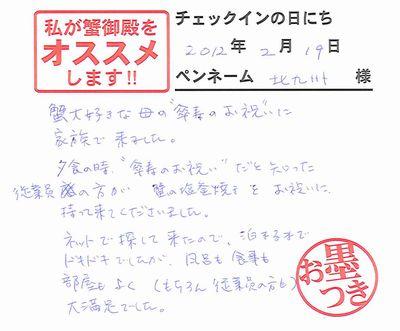 私が蟹御殿を
オススメ
します!!
チェックインの日にち
2012年 2月 19日
ペンネーム 北九州 様
蟹大好きな母の"傘寿のお祝い"に
家族で来ました。
夕食の時、"傘寿のお祝い"だと知った
従業員の方が 蟹の塩釜焼きを お祝いに
持って来てくださいました。
ネットで探して来たので、泊まるまで
ドキドキでしたが、風呂も食事も
部屋もよく(もちろん従業員の方も)
大満足でした。
お墨つき